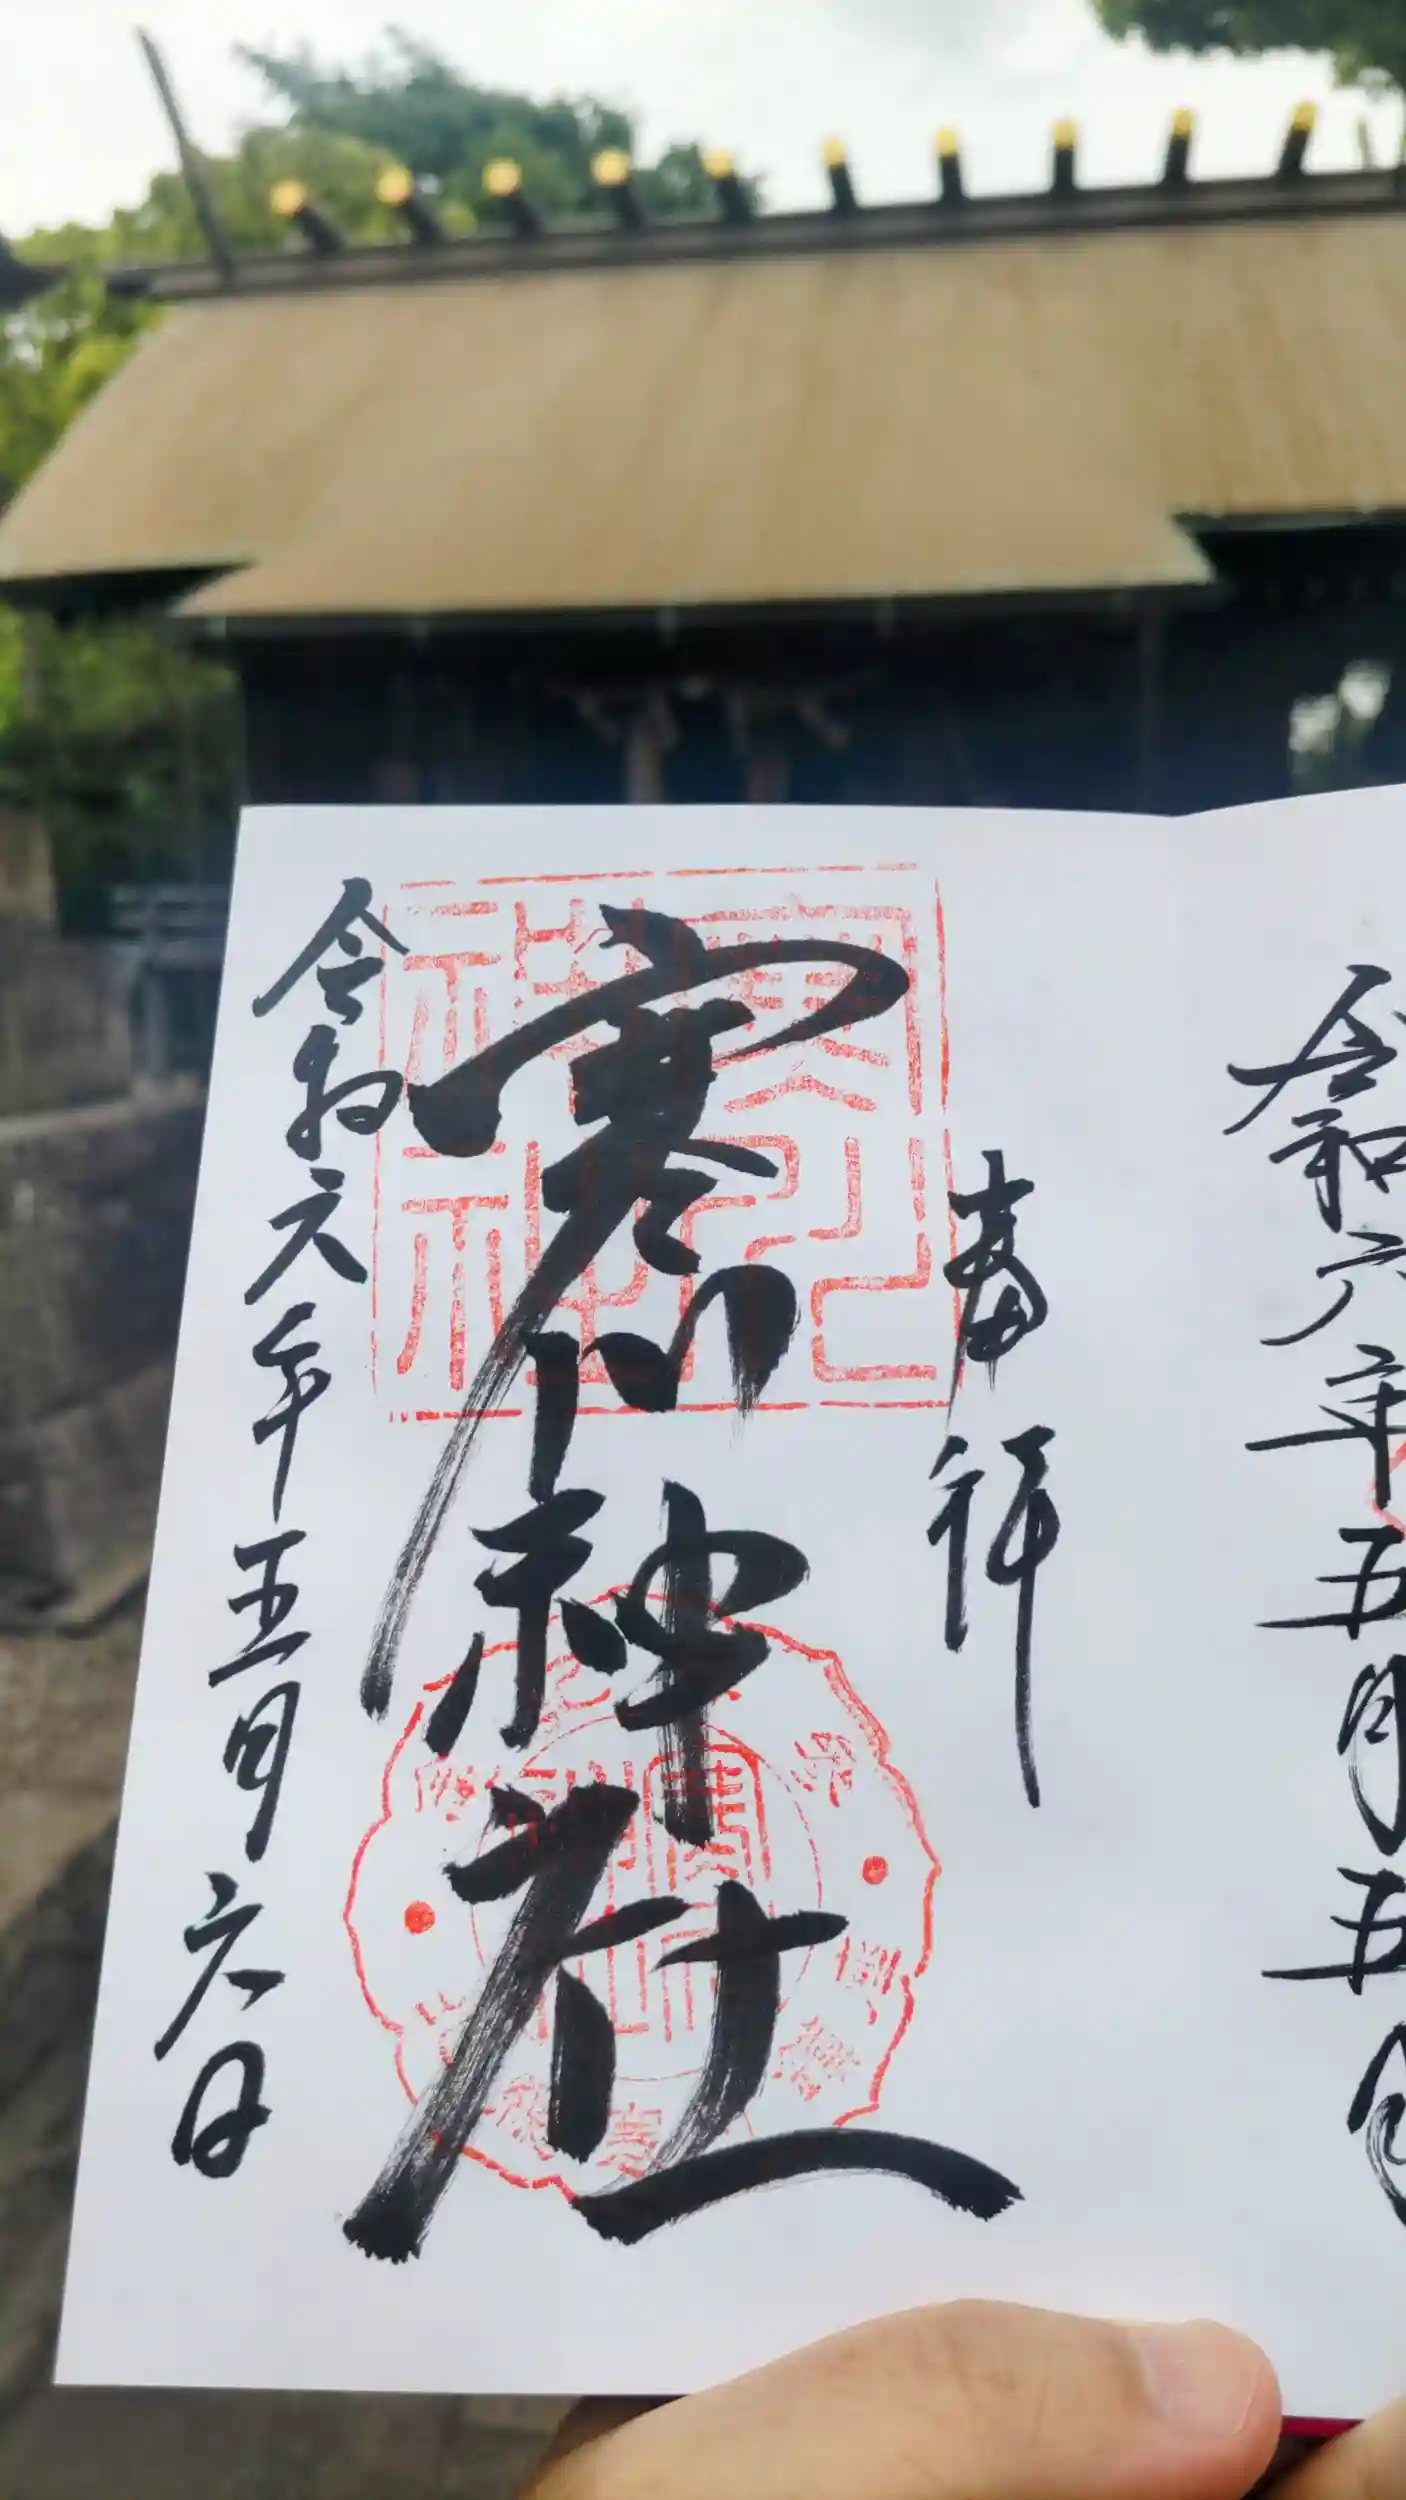 令和
六年
五月
五日
奉拝
寒川神社
令和六年五月六日
寒川
神社